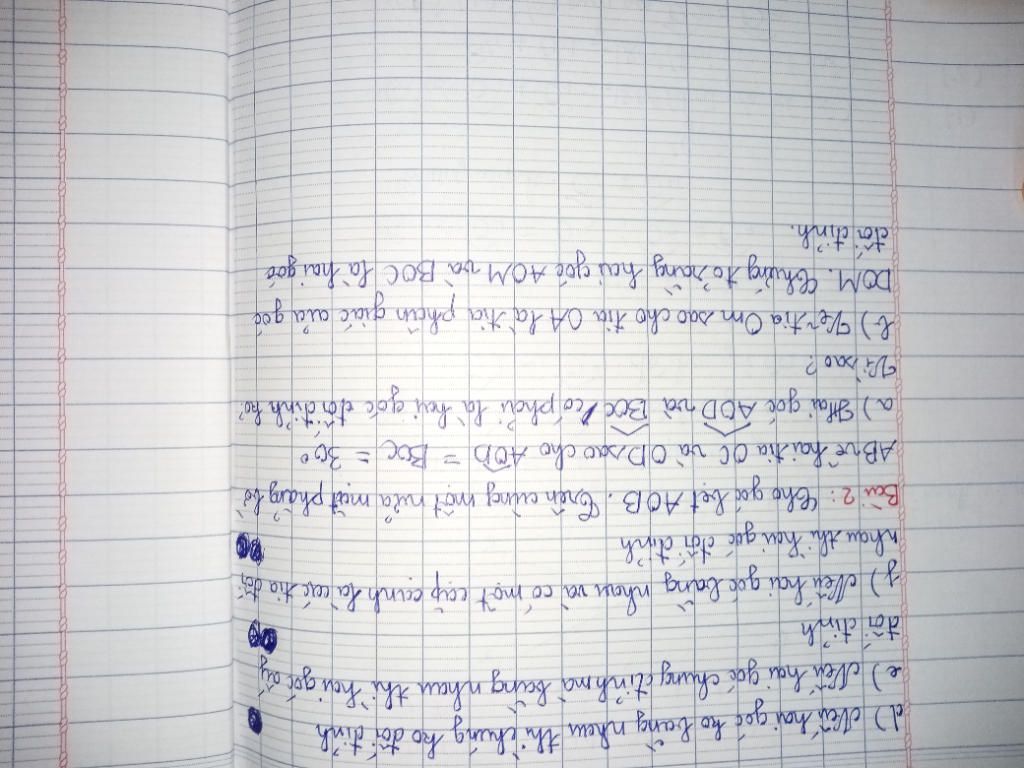 d) Nếu hai góc ko bằng nhau thì chúng ko đối đỉnh
e) Nếu hai góc chung đỉnh mà bằng nhau thì hai góc ấy
đối đỉnh
f) Nếu hai góc bằng nhau và có một cặp cạnh là các tia đối
nhau thì hai góc đối đỉnh
Bài 2: Cho góc bẹt AOB. Trên cùng một nửa mặt phẳng bờ
AB vẽ hai tia OC và OD sao cho AOD = BOC = 30°
a) Hai góc AOD và BOC có phải là hai góc đối đỉnh ko?
Vì sao?
b) Vẽ tia Om sao cho tia OA là tia phân giác của góc
DOM. Chứng tỏ rằng hai góc AOM và BOC là hai góc
đối đỉnh.